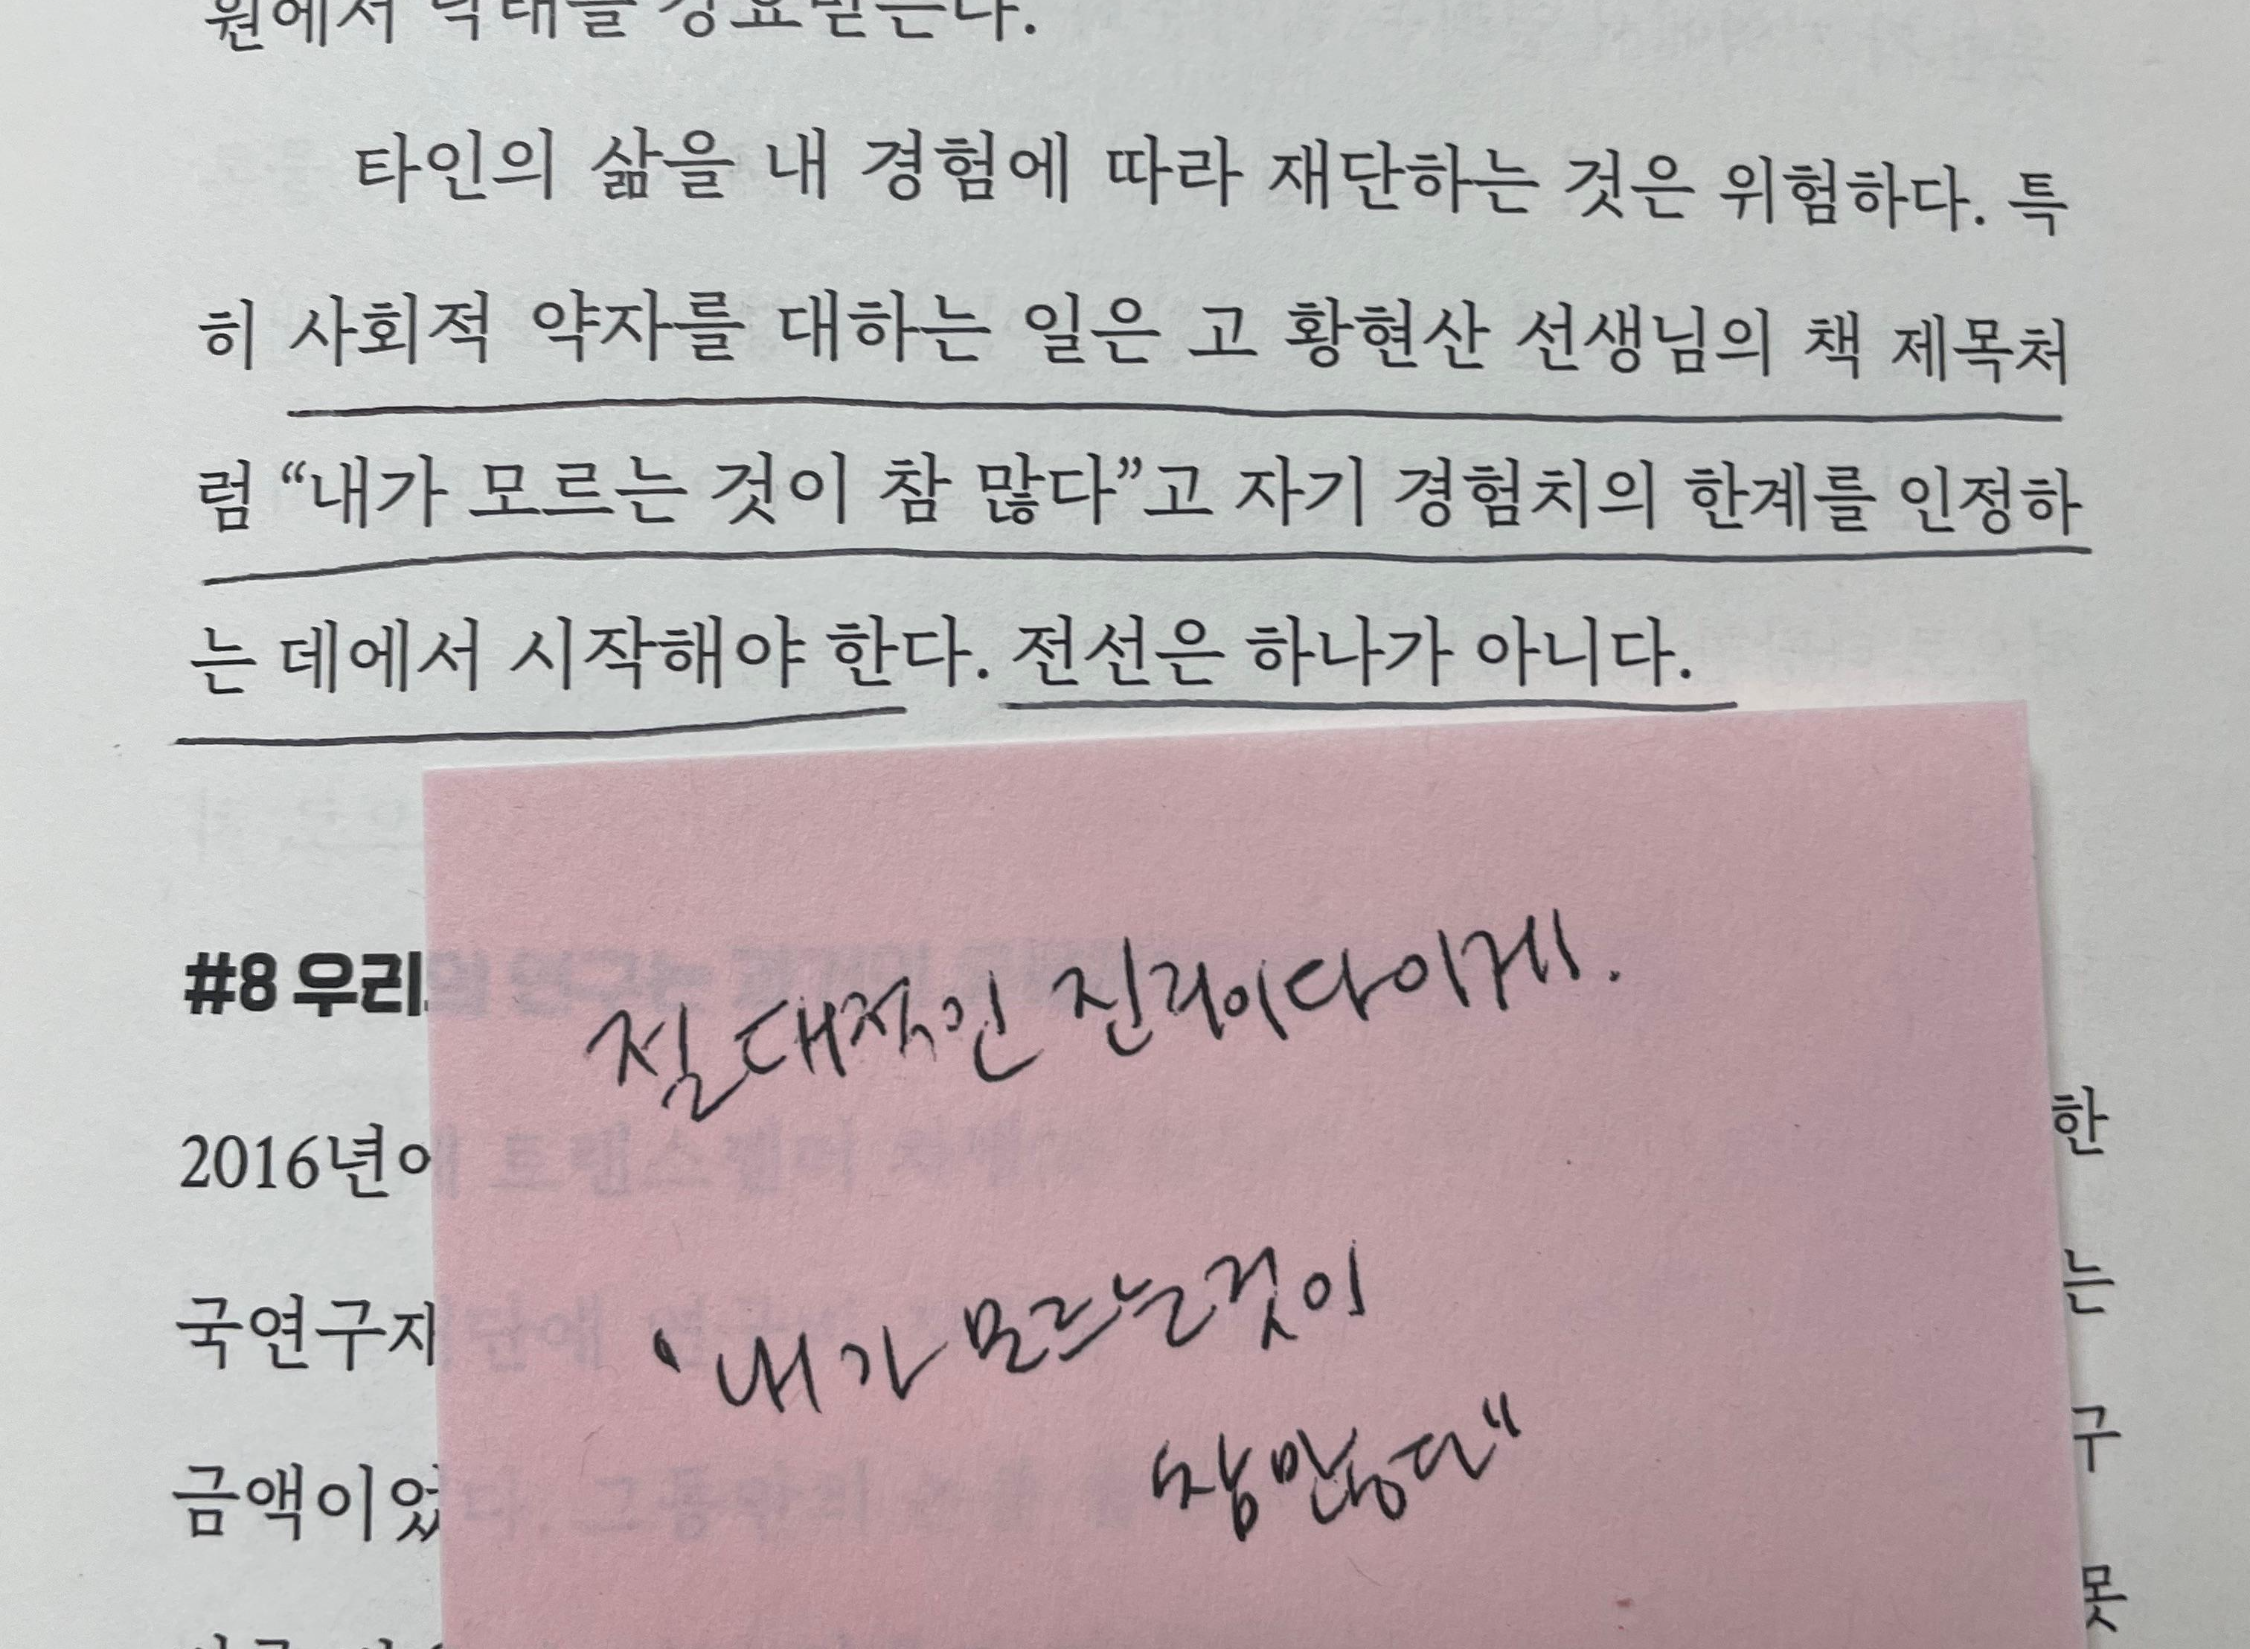 타인의 삶을 내 경험에 따라 재단하는 것은 위험하다. 특
히 사회적 약자를 대하는 일은 고 황현산 선생님의 책 제목처
럼 “내가 모르는 것이 참 많다”고 자기 경험치의 한계를 인정하
는 데에서 시작해야 한다. 전선은 하나가 아니다.
절대적인 진리이다 이게.
#8 우리
2016년에 트랜스젠더 한
'내가 모르는것이
국연구재단에 는
참 많다"
금액이었다. 구
못